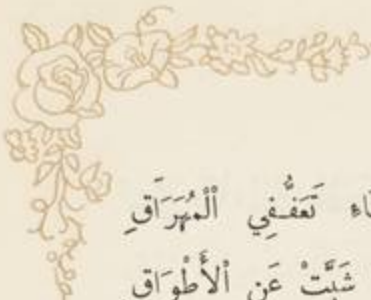 تَعَفُّفِي ٱلْمُهَرَاقِ
شَبَّتْ عَنِ ٱلْأَطْوَاقِ